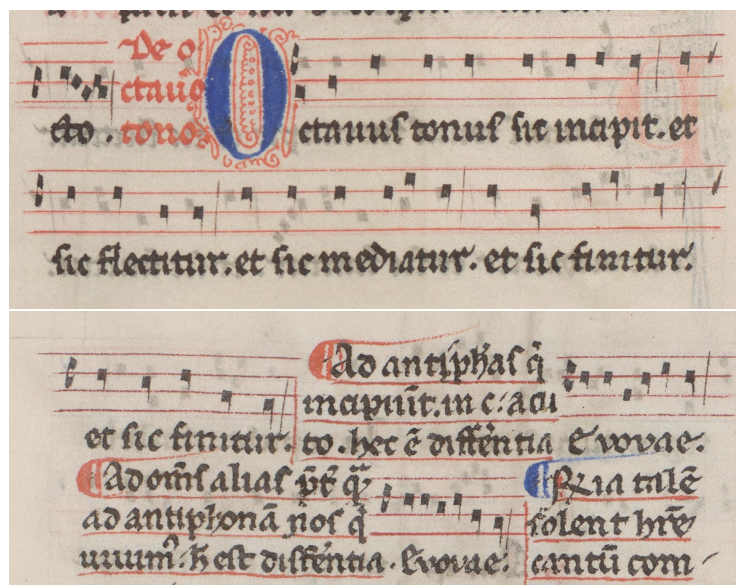 De o
ctauo
cto . tono. Octauus tonus sic incipit. et
sic flectitur. et sic mediatur. et sic finitur.
Ad antiph̄as q̄
incipiūt. in c. acu
et sic finitur. to . hec ē differ̄entia Evovae.
Ad om̄s alias p̄t
ad antiphonā nos q̄
uiuim᷒. h̄ est differ̄entia . Evovae.
talē
solent hr̄e
cantū com